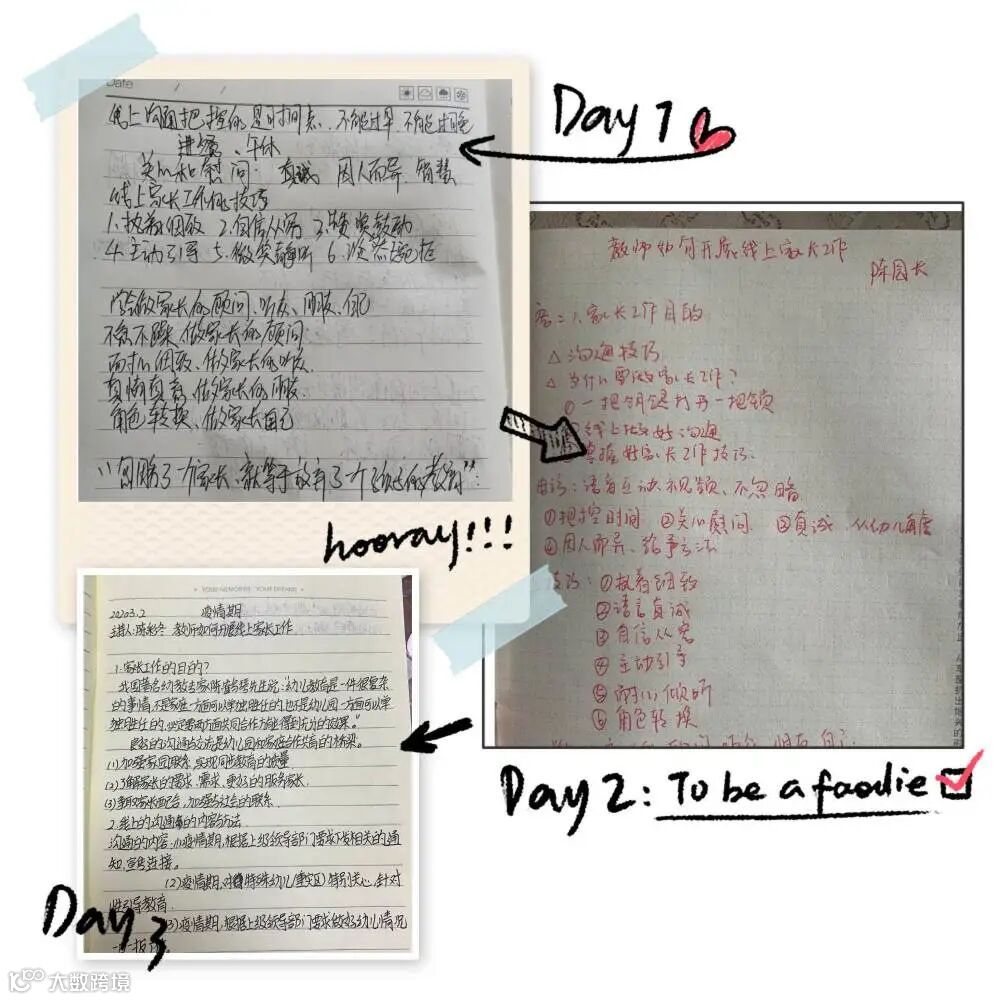 Date / /
Day 1
线上沟通把握的是时间点,不能过早,不能过晚
进餐、午休
关心和慰问:真诚 因人而异、智慧
线上家长工作的技巧
1.执着细致 2.自信从容 3.赞赏鼓励
4.主动引导 5.微笑静听 6.
学会做家长的顾问、听众、朋友、自己
不急不躁、做家长的顾问
耐心细致、做家长的听众
真情真意、做家长的朋友
角色转换、做家长自己
"忽略了一个家长、就等于放弃了一个孩子的教育"
hooray!!!
教师如何开展线上家长工作
陈园长
1、家长工作目的
△沟通技巧
△为什么要做家长工作?
①一把钥匙打开一把锁
线上做好沟通
掌握好家长工作技巧.
语音互动、视频、不忽略
①把控时间 ②关心慰问 ③真诚 从幼儿角度
④因人而异、给予方法
技巧:①执着细致
②语言真诚
③自信从容
④主动引导
⑤耐心倾听
⑥角色转换
Day 2: To be a foodie
YOUR MEMORIES
2020.3.2 疫情期
主讲人:陈彩冬 教师如何开展线上家长工作
1.家长工作的目的?
我国著名幼教专家陈鹤琴先生说:"幼儿教育是一件很复杂
的事情,不是家庭一方面可以单独胜任的,也不是幼儿园一方面可以单
独胜任的,必定要两方面共同合作方能得到充分的效果。"
更好的沟通与交流是幼儿园和家庭合作共育的桥梁。
(1)加强家园联系,实现同步教育的质量
(2)了解家长的要求、需求,更好的服务家长.
(3)争取家长配合,加强与社会的联系
2.线上的沟通的内容与方法
沟通的内容:(1)疫情期,根据上级领导部门要求下发相关的通
知,宣传连接。
(2)疫情期,对特殊幼儿(重灾区)特别关心,针对
性引导教育.
(3)疫情期,根据上级领导部门要求做好幼儿情况
Day 3
大数跨境